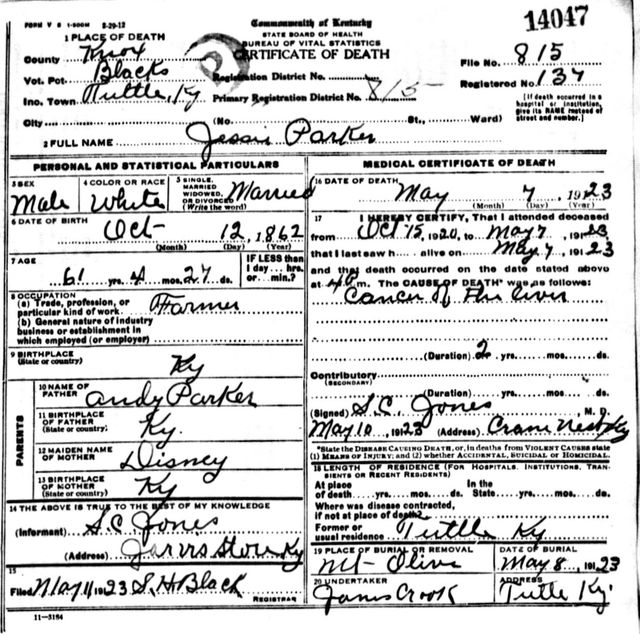 FORM V S 1-500M 8-29-12
Commonwealth of Kentucky
14047
STATE BOARD OF HEALTH
BUREAU OF VITAL STATISTICS
CERTIFICATE OF DEATH
1 PLACE OF DEATH
County Knox
Vot. Pct Blacks
Ino. Town Tuttle, Ky
City (No. St., Ward)
Registration District No.
Primary Registration District No. 815
File No. 815
Registered No. 137
[If death occurred in a hospital or institution, give its NAME instead of street and number.]
2 FULL NAME Jessie Parker
PERSONAL AND STATISTICAL PARTICULARS
3 SEX Male
4 COLOR OR RACE White
5 SINGLE, MARRIED WIDOWED, OR DIVORCED (Write the word) Married
6 DATE OF BIRTH Oct 12, 1862
(Month) (Day) (Year)
7 AGE 61 yrs. 4 mos. 27 ds.
IF LESS than 1 day... hrs. or... min.?
8 OCCUPATION
(a) Trade, profession, or particular kind of work Farmer
(b) General nature of industry business or establishment in which employed (or employer)
9 BIRTHPLACE (State or country) Ky
PARENTS
10 NAME OF FATHER Andy Parker
11 BIRTHPLACE OF FATHER (State or country) Ky.
12 MAIDEN NAME OF MOTHER Disney
13 BIRTHPLACE OF MOTHER (State or country) Ky
14 THE ABOVE IS TRUE TO THE BEST OF MY KNOWLEDGE
(Informant) S.C. Jones
(Address) Jarvis Store Ky
15
Filed May 11 1923 S. H. Black
REGISTRAR
11-3184
MEDICAL CERTIFICATE OF DEATH
16 DATE OF DEATH May 7, 1923
(Month) (Day) (Year)
17 I HEREBY CERTIFY, That I attended deceased
from Oct 15, 1920, to May 7, 1923
that I last saw h... alive on May 7, 1923
and that death occurred on the date stated above
at 4 P.m. The CAUSE OF DEATH* was as follows:
Cancer of the liver
(Duration) 2 yrs. mos. ds.
Contributory
(SECONDARY)
(Duration) yrs. mos. ds.
(Signed) S.C. Jones M. D.
May 10, 1923 (Address) Crane Nest Ky
*State the DISEASE CAUSING DEATH, or, in deaths from VIOLENT CAUSES state (1) MEANS OF INJURY; and (2) whether ACCIDENTAL, SUICIDAL or HOMICIDAL.
18 LENGTH OF RESIDENCE (FOR HOSPITALS, INSTITUTIONS, TRANSIENTS OR RECENT RESIDENTS)
At place of death yrs. mos. ds. In the State yrs. mos. ds.
Where was disease contracted, if not at place of death?
Former or usual residence Tuttle Ky
19 PLACE OF BURIAL OR REMOVAL Mt Olive
DATE OF BURIAL May 8, 1923
20 UNDERTAKER James Crook
ADDRESS Tuttle Ky.